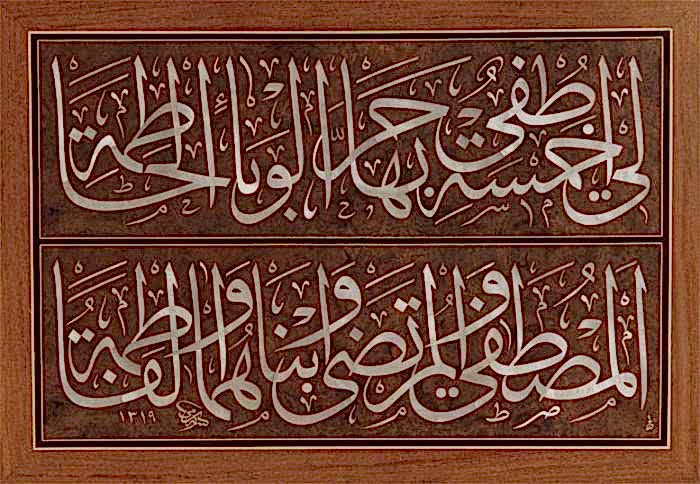 لي خمسة اطفي بها حر الوباء الحاطمة
المصطفى و المرتضى و ابناهما و الفاطمة
١٣١٩